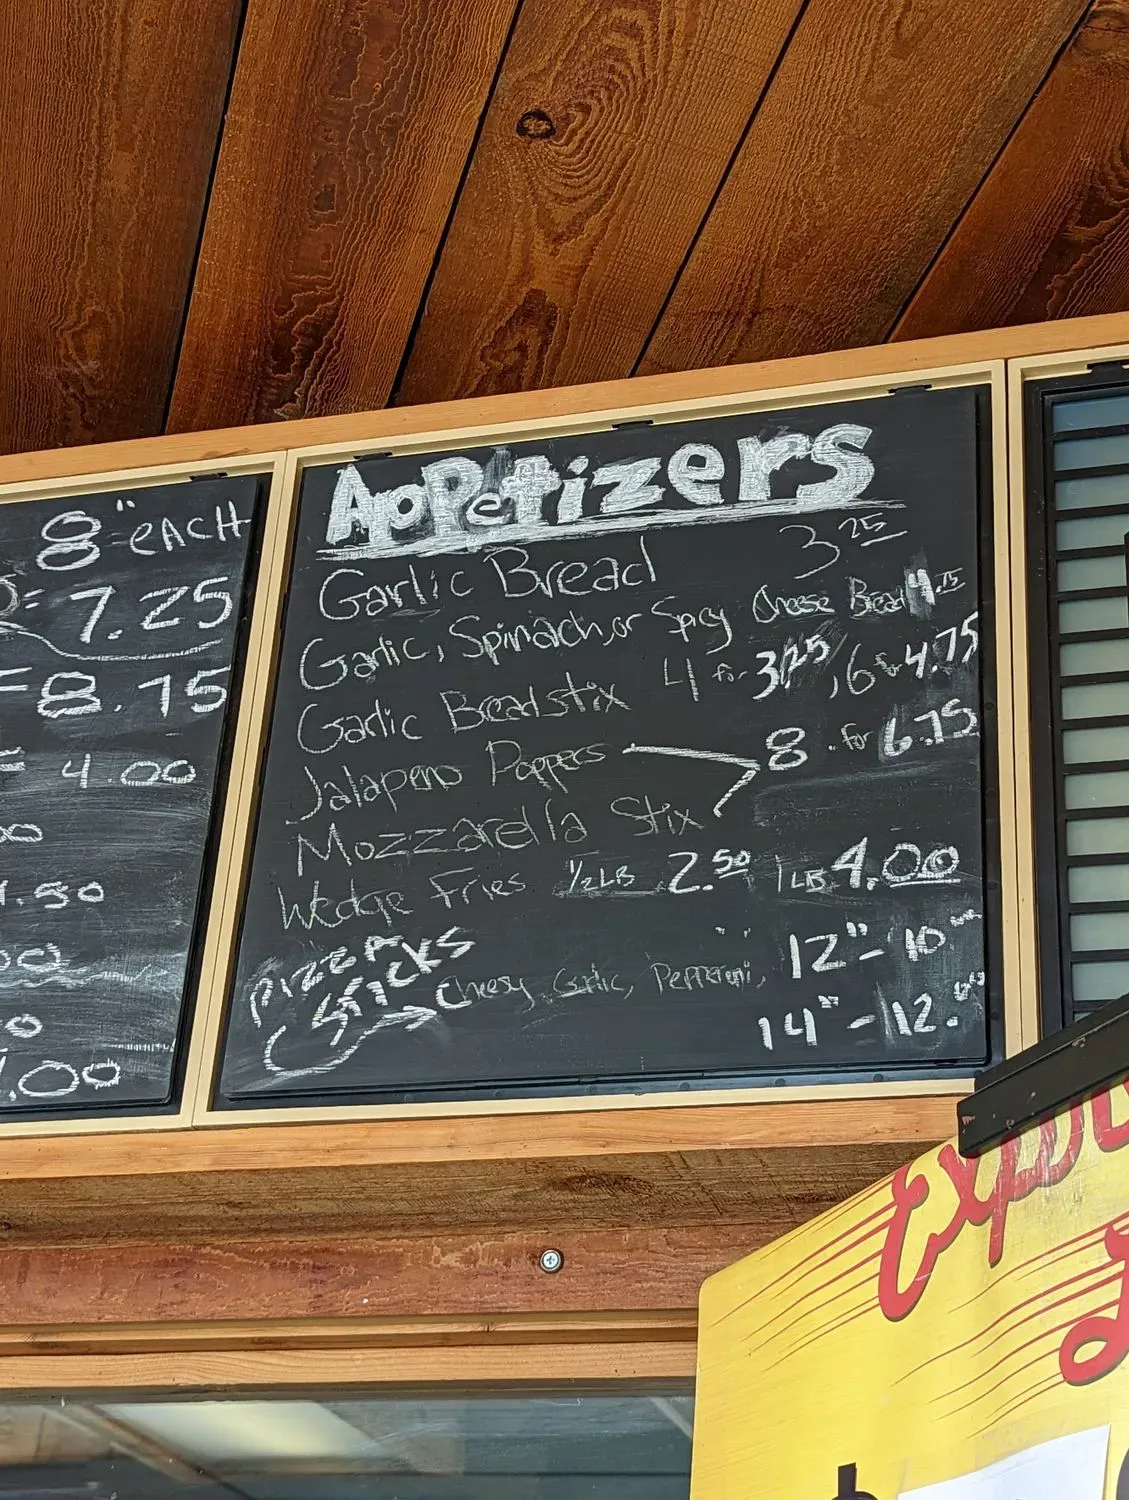 8" EACH
= 7.25
= 8.75
= 4.00
.50
.00
Appetizers
Garlic Bread 3.25
Garlic, Spinach, or Spicy Cheese Bread 4.25
Garlic Breadstix 4 for 3.25, 6 for 4.75
Jalapeno Poppers 8 for 6.75
Mozzarella Stix
Wedge Fries 1/2 LB 2.50 1 LB 4.00
Pizza Sticks
Cheesy Garlic, Pepperoni, 12" - 10.00
14" - 12.00